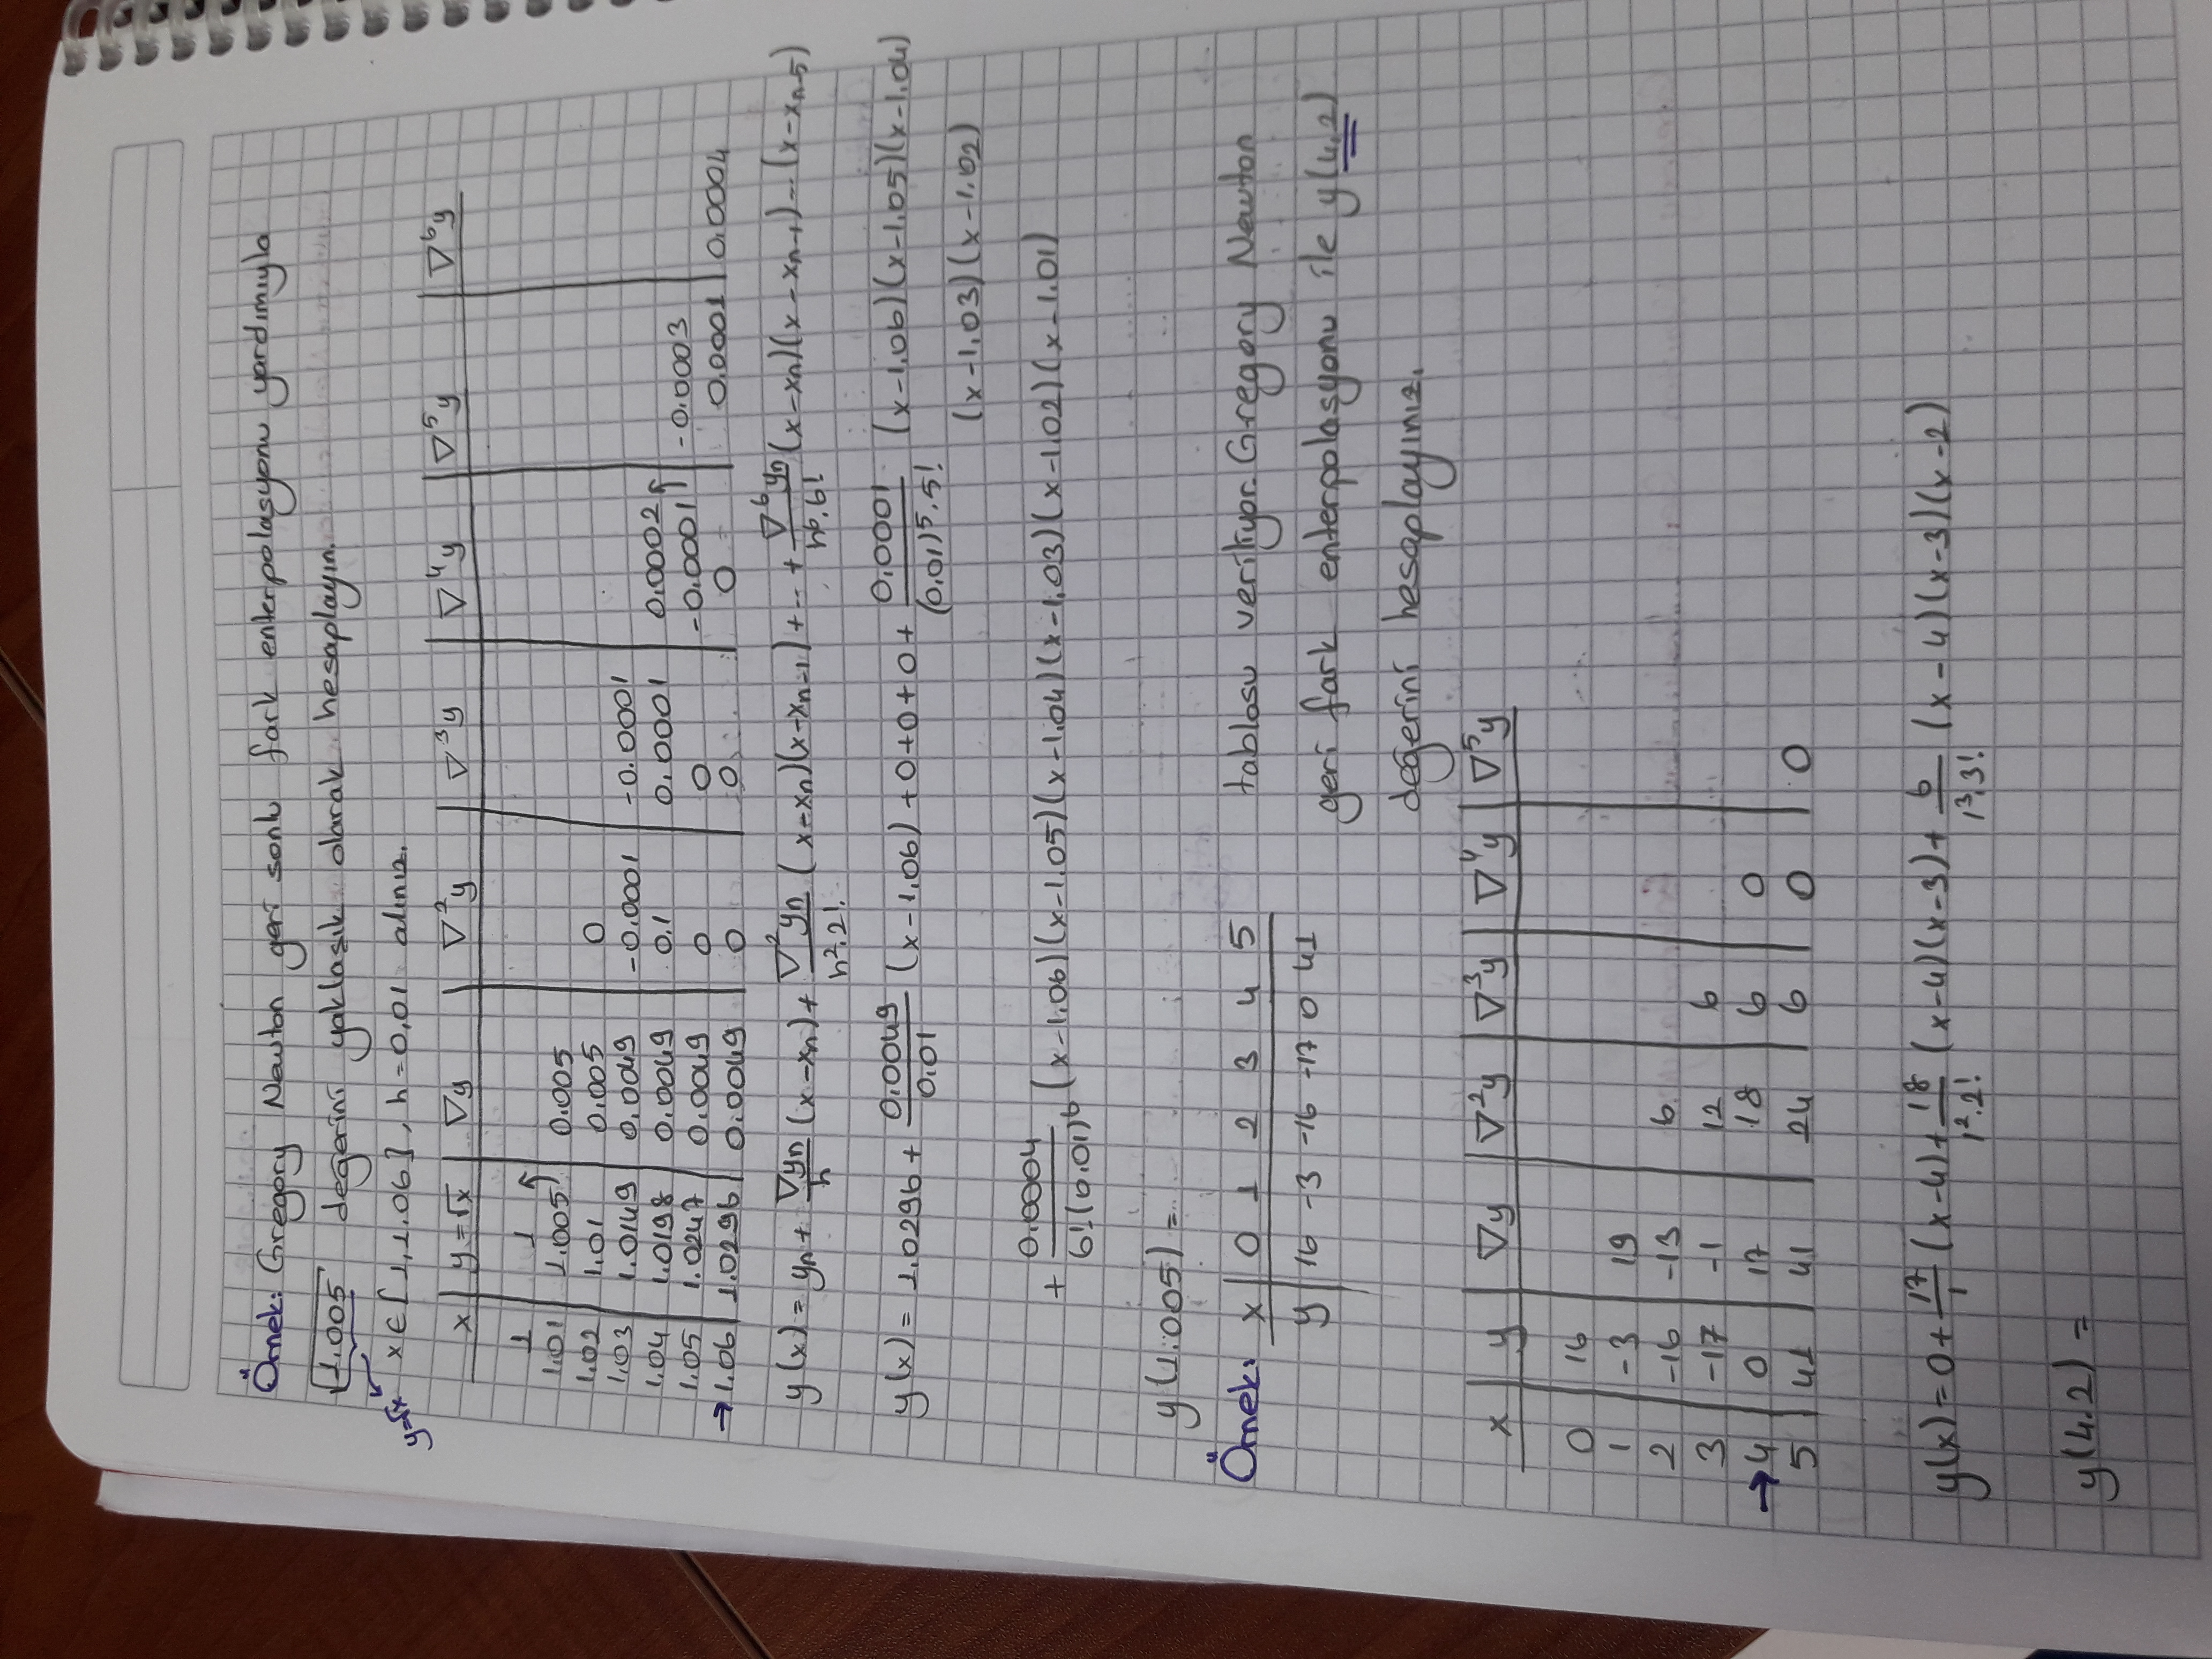 Örnek: Gregory Newton geri sonlu fark enterpolasyonu yardımıyla
√1.005 değerini yaklaşık olarak hesaplayın.
y=√x x∈[1,1.06], h=0,01 alınız.
x y=√x ∇y ∇²y ∇³y ∇⁴y ∇⁵y ∇⁶y
1 1
1.01 1.005 0.005
1.02 1.01 0.005 0
1.03 1.0149 0.0049 -0.0001 -0.0001
1.04 1.0198 0.0049 0.1 0.0001 0.0002
1.05 1.0247 0.0049 0 0 -0.0001 -0.0003
→1.06 1.0296 0.0049 0 0 0 0.0001 0.0004
y(x) = yn + ∇yn/h (x-xn) + ∇²yn/h².2! (x-xn)(x-xn-1) + ... + ∇⁶yn/h⁶.6! (x-xn)(x-xn-1)...(x-xn-5)
y(x) = 1.0296 + 0.0049/0.01 (x-1.06) + 0+0+0+ 0.0001/(0.01)⁵.5! (x-1.06)(x-1.05)(x-1.04)
(x-1.03)(x-1.02)
+ 0.0004/6!(0.01)⁶ (x-1.06)(x-1.05)(x-1.04)(x-1.03)(x-1.02)(x-1.01)
y(1.005) =
Örnek: x 0 1 2 3 4 5 tablosu veriliyor. Gregory Newton
y 16 -3 -16 -17 0 41
geri fark enterpolasyonu ile y(4.2)
değerini hesaplayınız.
x y ∇y ∇²y ∇³y ∇⁴y ∇⁵y
0 16
1 -3 19
2 -16 -13 6
3 -17 -1 12 6
→4 0 17 18 6 0
5 41 41 24 6 0 0
y(x) = 0 + 17/1 (x-4) + 18/1².2! (x-4)(x-3) + 6/1³.3! (x-4)(x-3)(x-2)
y(4.2) =